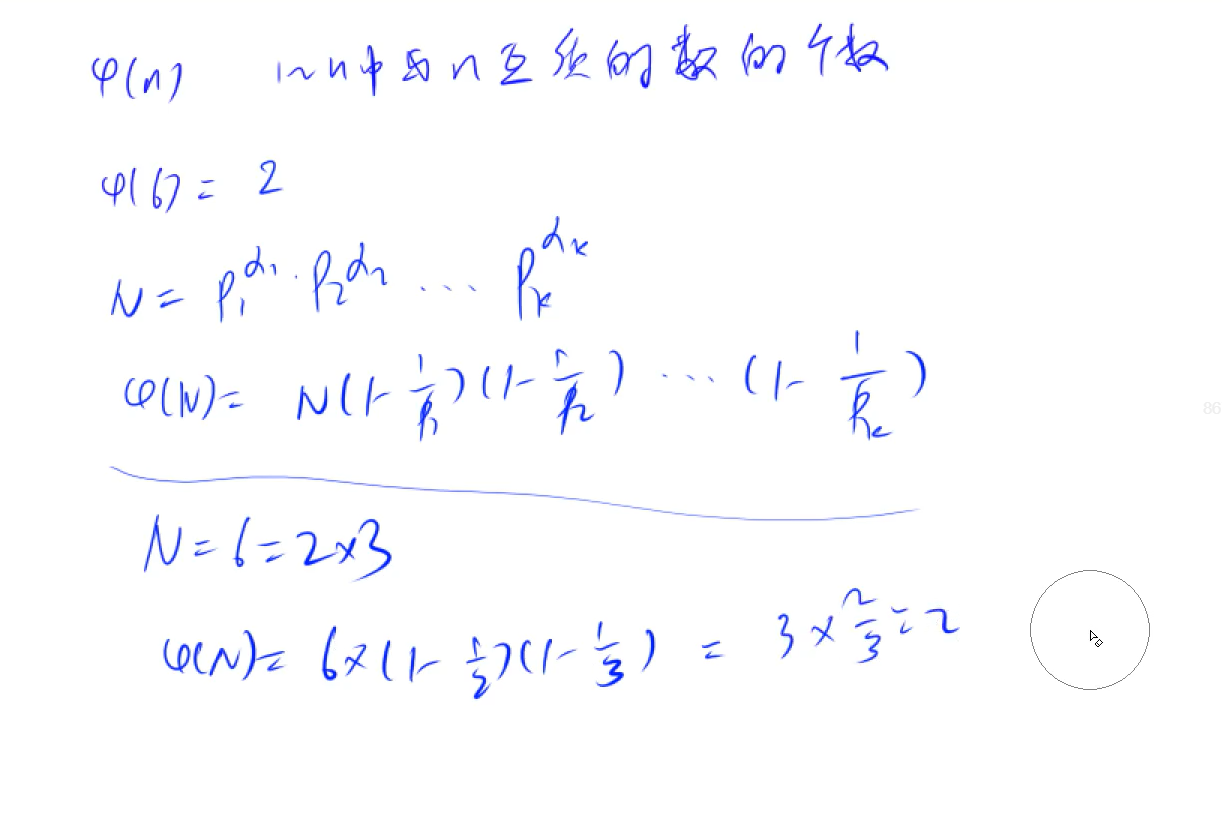 φ(n) 1~n中与n互质的数的个数
φ(6) = 2
N = P₁^α₁ · P₂^α₂ ... Pₖ^αₖ
φ(N) = N(1-1/P₁)(1-1/P₂) ... (1-1/Pₖ)
86
N = 6 = 2×3
φ(N) = 6×(1-1/2)(1-1/3) = 3×2/3 = 2